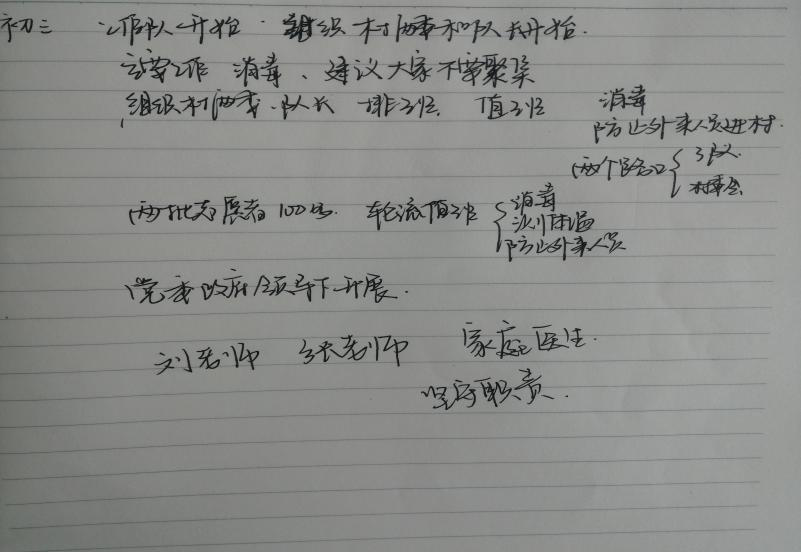 初三 工作队开始 组织村两委和队长开始.
主要工作 消毒、建议大家不要聚集
组织村两委、队长 排班. 值班 消毒
防止外来人员进村.
两个路口 3队.
村委会
两批志愿者100号. 轮流值班 消毒
测体温
防止外来人员
党委政府领导下开展.
刘老师 张老师 家庭医生.
坚守职责.